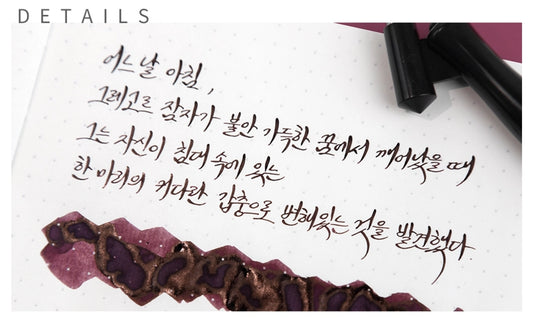 DETAILS
어느 날 아침,
그레고르 잠자가 불안 가득한 꿈에서 깨어났을 때
그는 자신이 침대 속에 있는
한 마리의 커다란 갑충으로 변해있는 것을 발견했다.